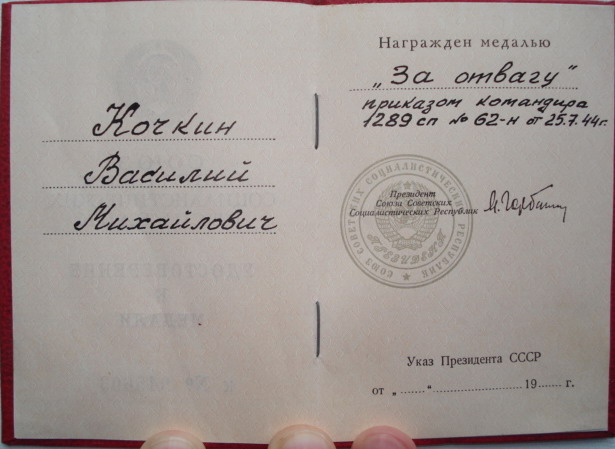 Кочкин
Василий
Михайлович
Награжден медалью
„За отвагу“
приказом командира
1289 сп № 62-н от 25.7.44г.
Президент
Союза Советских
Социалистических Республик
М. Горбачев
СОЮЗ СОВЕТСКИХ СОЦИАЛИСТИЧЕСКИХ РЕСПУБЛИК
ПРЕЗИДЕНТ
Указ Президента СССР
от „ ....... “ ........................ 19 ....... г.
УДОСТОВЕРЕНИЕ
К
МЕДАЛИ